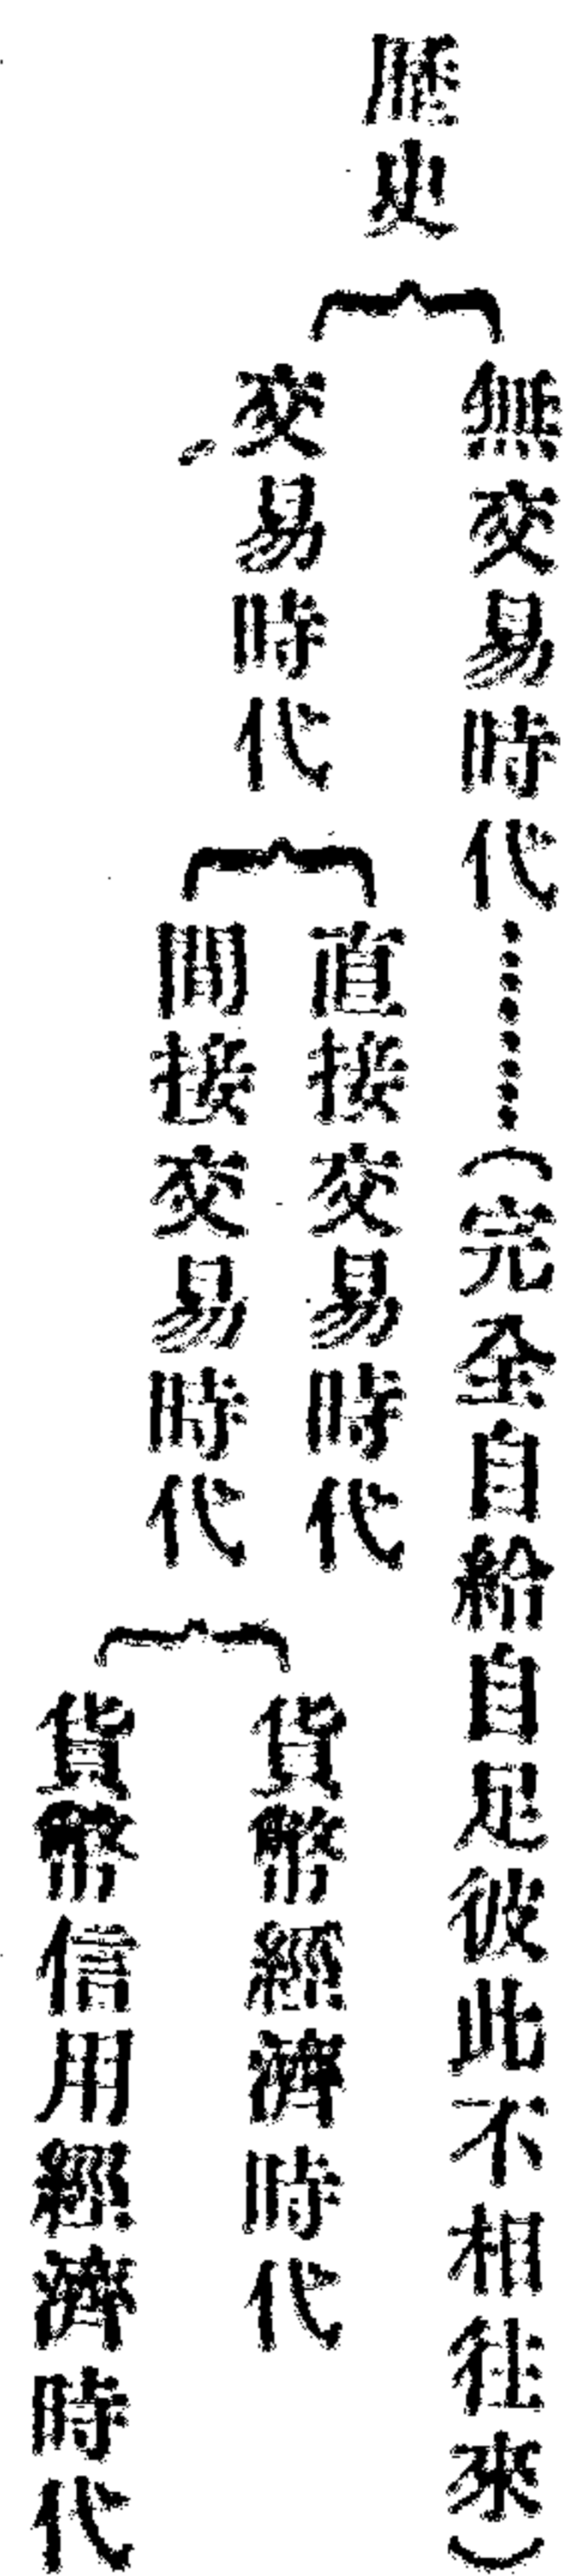 歷史
無交易時代……(完全自給自足彼此不相往來)
交易時代
直接交易時代
間接交易時代
貨幣經濟時代
貨幣信用經濟時代